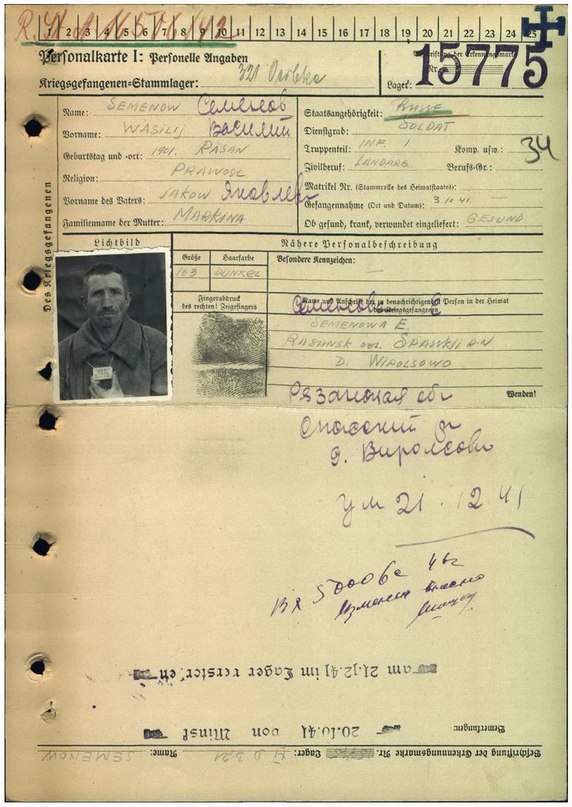 1 2 3 4 5 6 7 8 9 10 11 12 13 14 15 16 17 18 19 20 21 22 23 24 25
Personalkarte I: Personelle Angaben
Kriegsgefangenen-Stammlager: 321 Oerbke
Beschriftung der Erkennungsmarke
Nr. 15775
Lager:
Des Kriegsgefangenen
Name: SEMENOW Семенов
Vorname: WASILIJ Василий
Geburtstag und -ort: 1901. RASAN
Religion: PRAWOSL
Vorname des Vaters: JAKOW Яковлев
Familienname der Mutter: MARKINA
Staatsangehörigkeit: RUSSE
Dienstgrad: SOLDAT
Truppenteil: INF. 1 Komp. usw.: 34
Zivilberuf: LANDARB Berufs-Gr.:
Matrikel Nr. (Stammrolle des Heimatstaates):
Gefangennahme (Ort und Datum): 3.10.41.
Ob gesund, krank, verwundet eingeliefert: GESUND
Lichtbild
Nähere Personalbeschreibung
Größe Haarfarbe Besondere Kennzeichen:
163 DUNKEL
Fingerabdruck
des rechten! Zeigefingers
Name und Anschrift der zu benachrichtigenden Person in der Heimat
des Kriegsgefangenen
Семенова Е
SEMENOWA E.
RASANSK OBL. SPASKIJ R-N
D. WIROLSOWO
Wenden!
Рязанская обл
Спасский
д. Виролсово
ум 21.12.41
am 21.12.41 im Lager verstorben
20.10.41 von Minsk
Bemerkungen:
Beschriftung der Erkennungsmarke Nr. Lager: XI D 321 Name: SEMENOW